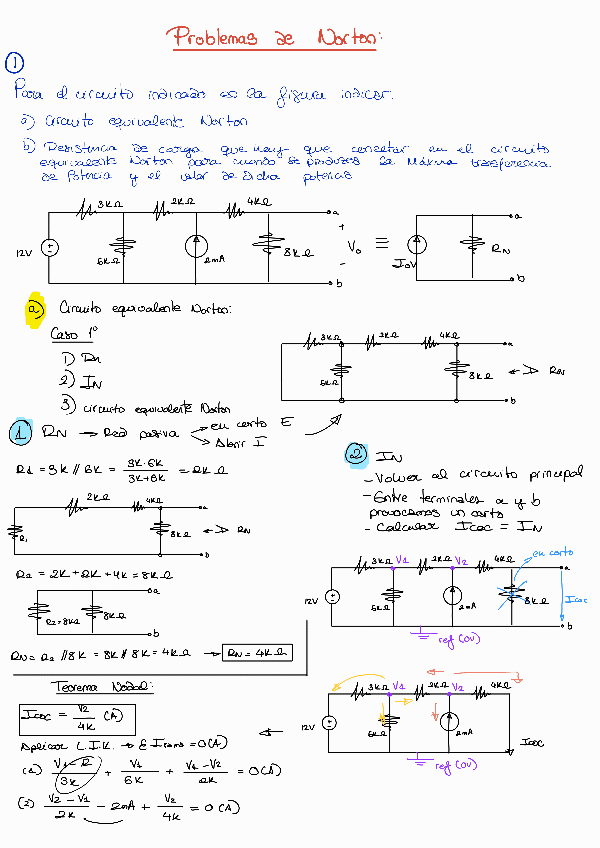 Problemas de Norton:
1
Para el circuito indicado en la figura indicar:
a) Circuito equivalente Norton
b) Resistencia de carga que hay que conectar en el circuito
equivalente Norton para cuando se producirá la máxima transferencia
de Potencia y el valor de Dicha potencia
3KΩ 2KΩ 4KΩ a
12V 6KΩ 2mA 8KΩ + Vo - ≡ RN a
b b
a) Circuito equivalente Norton:
Caso 1º
1) Rn
2) IN
3) circuito equivalente Norton
3KΩ 2KΩ 4KΩ a
6KΩ 8KΩ RN
b
1 RN → Red pasiva en corto E
Abrir I
R1 = 3K // 6K = 3K·6K / 3K+6K = 2KΩ
2KΩ 4KΩ a
R1 8KΩ RN
b
R2 = 2K + 2K + 4K = 8KΩ
a
R2=8KΩ 8KΩ
b
RN = R2 // 8K = 8K // 8K = 4KΩ → RN = 4KΩ
2 IN
- Volver al circuito principal
- Entre terminales a y b
provocamos un corto
- Calcular Icoc = IN
en corto
3KΩ V1 2KΩ V2 4KΩ a
12V 6KΩ 2mA 8KΩ Icoc
b
ref (0V)
Teorema Nodal:
Icoc = V2 / 4K (A)
Aplicar L.I.K. → Σ I = 0(A)
(1) V1 - 12 / 3K + V1 / 6K + V1 - V2 / 2K = 0(A)
(2) V2 - V1 / 2K - 2mA + V2 / 4K = 0(A)
3KΩ V1 2KΩ V2 4KΩ
12V 6KΩ 2mA Icoc
ref (0V)